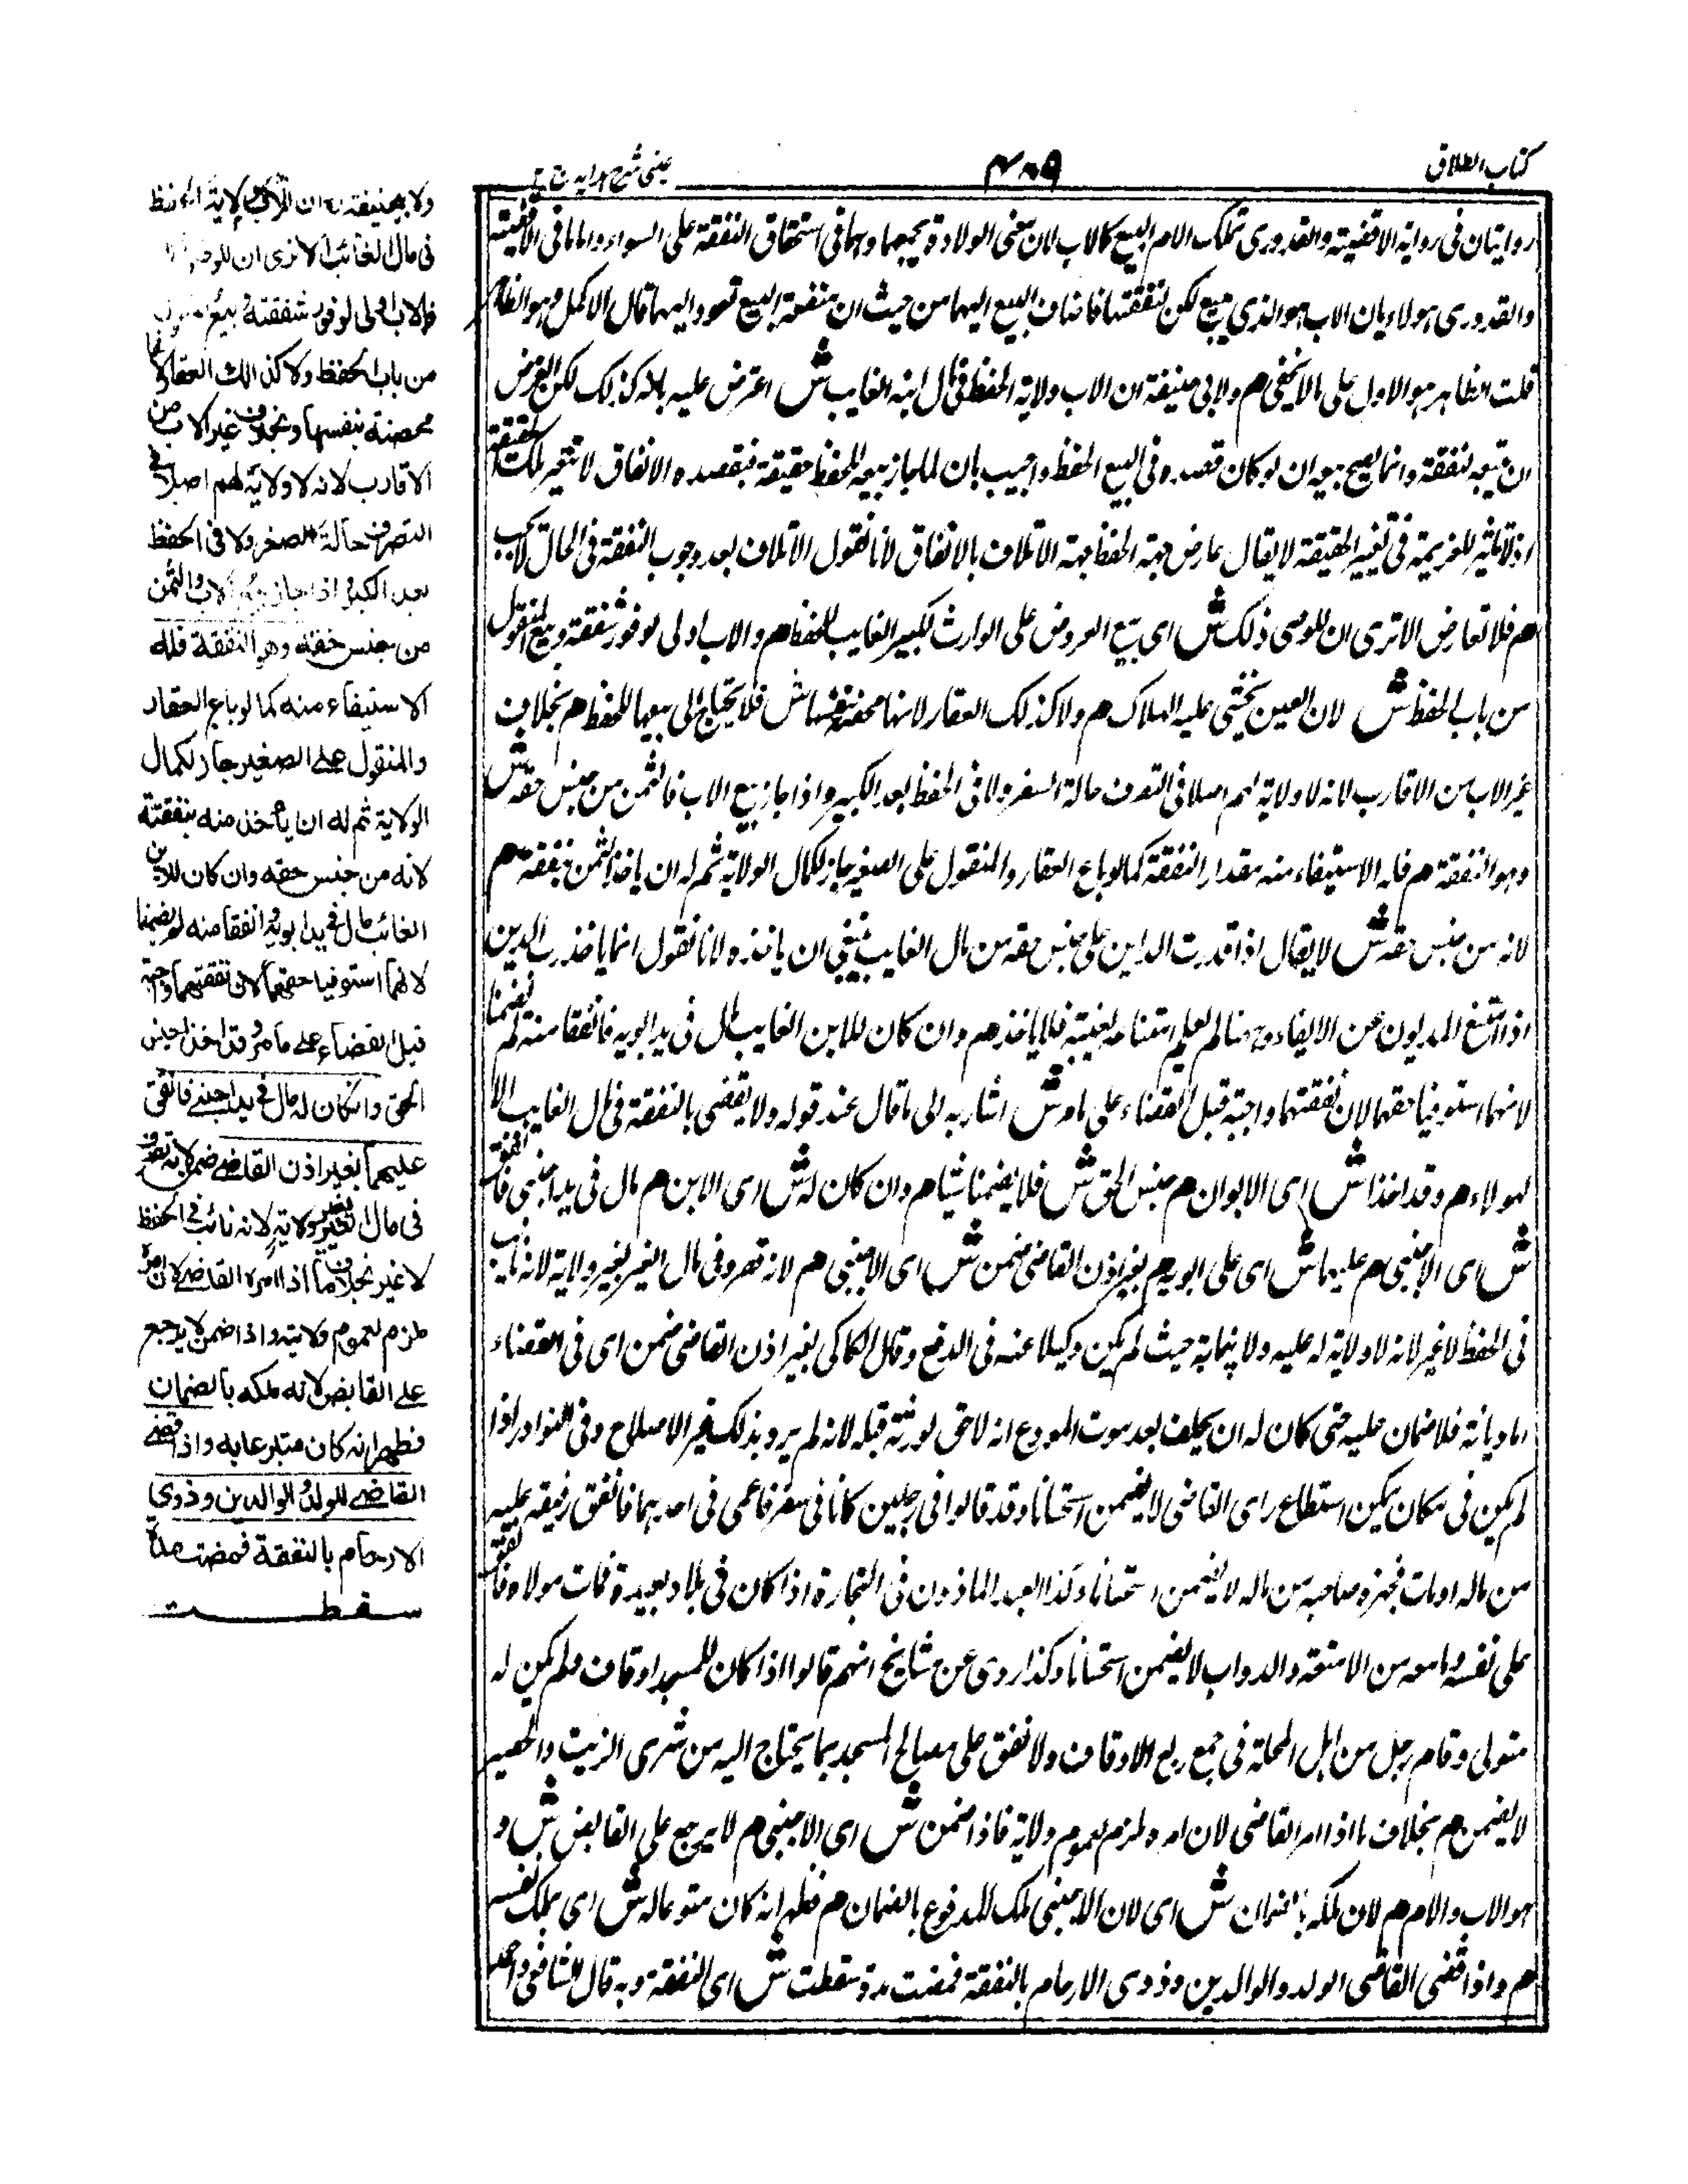 كتاب الطلاق
عينى شرح هدايه ج ٢
روايتان فى رواية الاقضية والقدورى تملك الام البيع كالاب لان معنى الولادة يجمعهما وهما فى استحقاق النفقة على السواء واما فى الاقضية
والقدورى هولاء بان الاب هو الذي يبيع لكن لنفقتها فاضاف البيع اليهما من حيث ان منفعة البيع تعود اليهما قال الاكمل وهو الظاهر
قلت الظاهر هو الاول على ما لا يخفى م ولابى حنيفة ان الاب ولاية الحفظ فى مال ابنه الغايب ش اعترض عليه بانه كذلك لكن الغرض
ان يبيعه لنفقة وانما يصح بيعه ان لو كان قصده فى البيع الحفظ واجيب بان لما جاز بيعه للحفظ حقيقة فبقصده الانفاق لا تتغير تلك الحقيقة
اذ لا تاثير للعزيمة فى تغيير الحقيقة لا يقال عارض جهة الحفظ جهة الاتلاف بالانفاق لانا نقول الاتلاف بعد وجوب النفقة فى الحال لا يجب
هم فلا تعارض الا ترى ان للوصى ذلك ش اى بيع العروض على الوارث الكبير الغايب للحفظ هم والاب اولى لوفور شفقته وبيع المنقول
من باب الحفظ ش لان العين يخشى عليه الهلاك م ولا كذلك العقار لانها محصنة بنفسها ش فلا يحتاج الى بيعها للحفظ هم بخلاف
غير الاب من الاقارب لانه لا ولاية لهم اصلا فى التصرف حالة الصغر ولا فى الحفظ بعد الكبر واذا جاز بيع الاب فالثمن من جنس حقه ش
وهو النفقة هم فله الاستيفاء منه مقدار النفقة كما لو باع العقار والمنقول على الصغير جاز لكمال الولاية ثم له ان ياخذ الثمن بنفقته هم
لانه من جنس حقه ش لا يقال اذا قدرت الداين على جنس حقه من مال الغايب ينبغى ان ياخذه لانا نقول انما ياخذ رب الدين
اذا امتنع المديون عن الايفاء وههنا لم يعلم امتناعه لغيبته فلا ياخذ هم وان كان للابن الغايب مال فى يد ابويه فانفقا منه لم يضمنا
لانهما استوفيا حقهما لان نفقتهما واجبة قبل القضاء على ما مر ش اشار به الى ما قال عند قوله ولا يقضى بالنفقة فى مال الغايب الا
لهولاء هم وقد اخذا ش اى الابوان م جنس الحق ش فلا يضمنا شيئا هم وان كان له ش اى الابن هم مال فى يد اجنبى فانفق
ش اى الاجنبى م عليهما ش اى على ابويه هم بغير اذن القاضى ضمن ش اى الاجنبى هم لانه تصرف فى مال الغير بغير ولاية لانه نايب
فى الحفظ لا غير لانه لا ولاية له عليه ولا نيابة حيث لم يكن وكيلا عنه فى الدفع وقال الكاكى بغير اذن القاضى ضمن اى فى القضاء
اما ديانة فلا ضمان عليه حتى كان له ان يحلف بعد موت المودع انه لا حق لورثته قبله لانه لم يرو بذلك غير الاصلاح وفى النوادر اذا
لم يكن فى مكان يمكن استطلاع راى القاضى لا يضمن استحسانا وقد قالوا فى رجلين كانا فى سفر فاغمى فى احدهما فانفق رفيقه عليه
من ماله او مات فجهزه صاحبه من ماله لا يضمن استحسانا وكذا العبد الماذون فى التجارة اذا كان فى بلاد بعيدة فمات مولاه فانفق
على نفسه وما معه من الامتعة والدواب لا يضمن استحسانا وكذا روى عن مشايخ انهم قالوا اذا كان للمسجد اوقاف ولم يكن له
متولى وقام رجل من اهل المحلة فى جمع ريع الاوقاف ولا نفق على مصالح المسجد بما يحتاج اليه من شرى الزيت والحصير
لا يضمن هم بخلاف ما اذا امر القاضى لان امره ملزم لعموم ولاية فاذا ضمن ش اى الاجنبى م لا يرجع على القابض ش و
هو الاب والام هم لان ملكه بالضمان ش اى لان الاجنبى ملك المدفوع بالضمان هم فظهر انه كان متبرعا به ش اى بملك نفسه
هم واذا قضى القاضى الولد والوالدين وذوى الارحام بالنفقة فمضت مدة سقطت ش اى النفقة وبه قال الشافعى واحمد
ولابى حنيفة ان للاب ولاية الحفظ
فى مال الغائب الا ترى ان للوصى
فالاب اولى لوفور شفقته وبيع المنقول
من باب الحفظ ولا كذالك العقار لانها
محصنة بنفسها وبخلاف غير الاب من
الاقارب لانه لا ولاية لهم اصلا فى
التصرف حالة الصغر ولا فى الحفظ
بعد الكبر اذا جاز بيع الاب والثمن
من جنس حقه وهو النفقة فله
الاستيفاء منه كما لو باع العقار
والمنقول على الصغير جاز لكمال
الولاية ثم له ان يأخذ منه بنفقته
لانه من جنس حقه وان كان للابن
الغائب مال فى يد ابويه وانفقا منه لم يضمنا
لانهما استوفيا حقهما لان نفقتهما واجبة
قبل القضاء على ما مر وقد اخذا جنس
الحق وان كان له مال فى يد اجنبى فانفق
عليهما بغير اذن القاضى ضمن لانه تصرف
فى مال الغير بغير ولاية لانه نائب فى الحفظ
لا غير بخلاف ما اذا امره القاضى لان امره
ملزم لعموم ولايته واذا ضمن لا يرجع
على القابض لانه ملكه بالضمان
فظهر انه كان متبرعا به واذا قضى
القاضى للولد والوالدين وذوى
الارحام بالنفقة فمضت مدة
سقطت